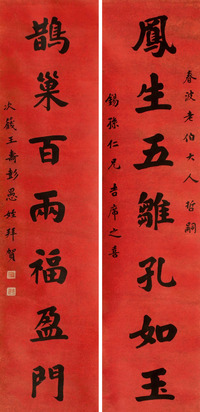 春波老伯大人 哲嗣
鳳生五雛孔如玉
錫孫仁兄吉席之喜
鵲巢百兩福盈門
次籛王壽彭愚姪拜賀